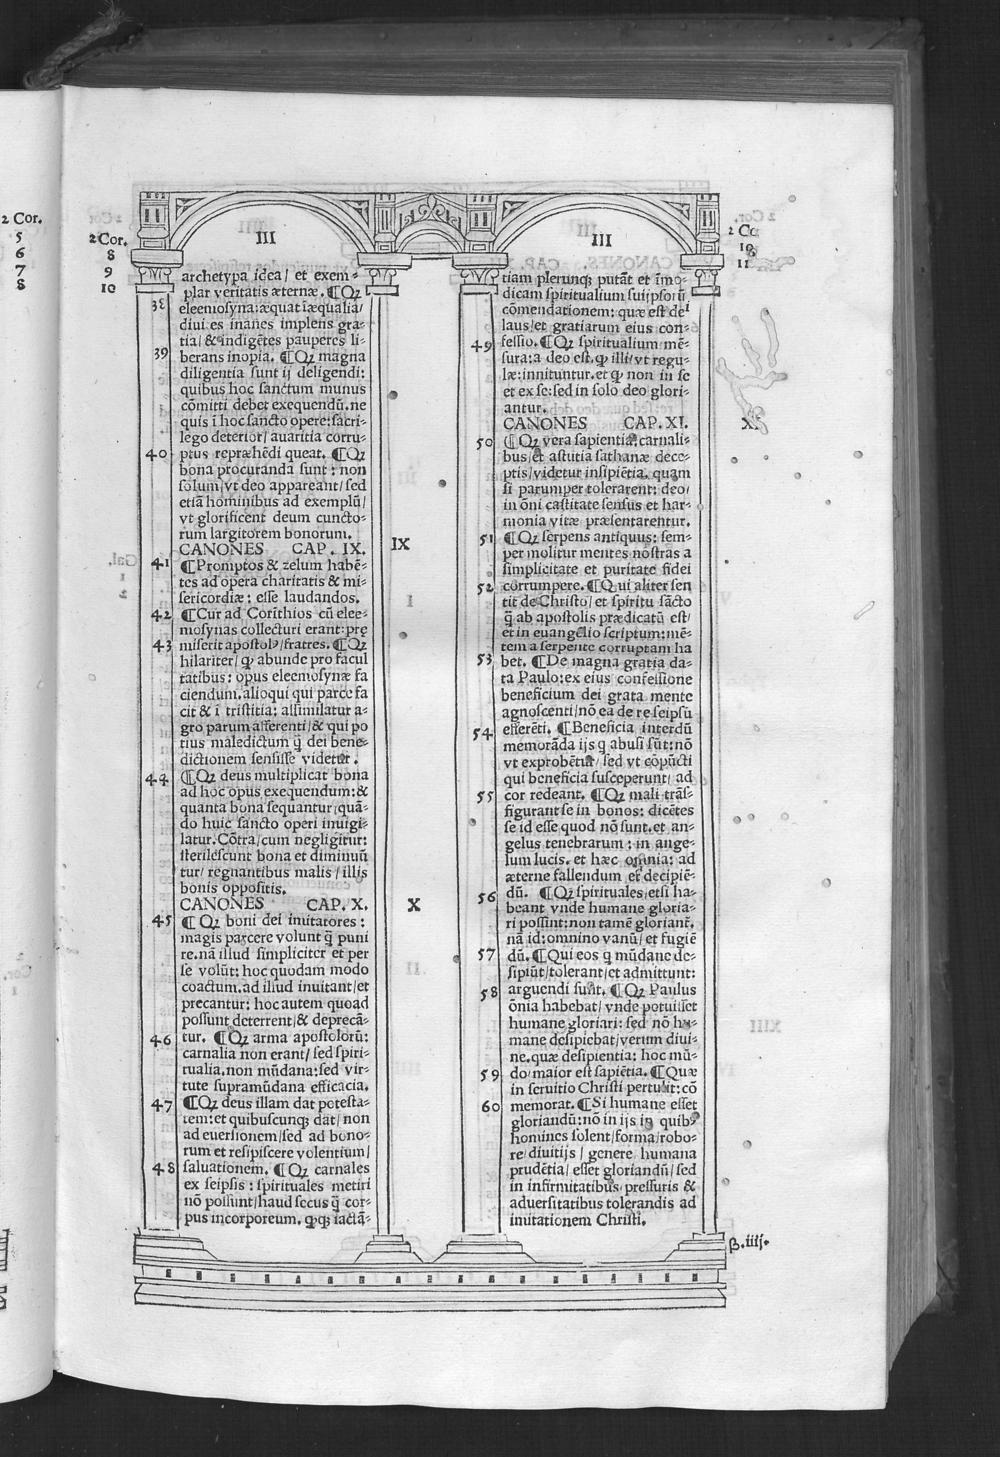 2 Cor.
5
6
7
8
2 Cor.
8
9
10
III
archetypa idea/ et exem⸗
plar veritatis æternæ. ¶Qꝫ
38
eleemosyna: æquat ĩæqualia/
diui es inanes implens gra⸗
tia/ & indigẽtes pauperes li⸗
39
berans inopia. ¶Qꝫ magna
diligentia sunt ij deligendi:
quibus hoc sanctum munus
cõmitti debet exequendũ. ne
quis ĩ hoc sancto opere: sacri⸗
lego deterior/ auaritia corru⸗
40
ptus repræhẽdi queat. ¶Qꝫ
bona procuranda sunt: non
solum/ vt deo appareant/ sed
etiã hominibus ad exemplũ/
vt glorificent deum cuncto⸗
rum largitorem bonorum.
CANONES CAP. IX.
IX
41
¶Promptos & zelum habẽ⸗
tes ad opera charitatis & mi⸗
sericordiæ: esse laudandos.
42
¶Cur ad Corĩthios cũ elee⸗
mosynas collecturi erant: prę
43
miserit apostolꝰ/ fratres. ¶Qꝫ
hilariter/ ꝙ abunde pro facul
tatibus: opus eleemosynæ fa
ciendum. alioqui qui parce fa
cit & ĩ tristitia: assimilatur a⸗
gro parum afferenti/ & qui po
tius maledictum q̃ dei bene⸗
dictionem sensisse videtur.
44
¶Qꝫ deus multiplicat bona
ad hoc opus exequendum: &
quanta bona sequantur/ quã⸗
do huic sancto operi inuigi⸗
latur. Cõtra/ cum negligitur:
sterilescunt bona et diminuũ
tur/ regnantibus malis/ illis
bonis oppositis.
CANONES CAP. X.
X
45
¶Qꝫ boni dei inuitatores:
magis parcere volunt q̃ puni
re. nã illud simpliciter et per
se volũt: hoc quodam modo
coactum. ad illud inuitant/ et
precantur: hoc autem quoad
possunt deterrent/ & deprecã⸗
46
tur. ¶Qꝫ arma apostolorũ:
carnalia non erant/ sed spiri⸗
tualia. non mũdana: sed vir⸗
tute supramũdana efficacia.
47
¶Qꝫ deus illam dat potesta⸗
tem: et quibuscunqꝫ dat/ non
ad euersionem/ sed ad bono⸗
rum et resipiscere volentium/
48
saluationem. ¶Qꝫ carnales
ex seipsis: spirituales metiri
nõ possunt/ haud secus q̃ cor⸗
pus incorporeum. ꝙqꝫ iactã⸗
III
2 Co
10
11
tiam plerunqꝫ putãt et ĩmo⸗
dicam spiritualium suiipsorũ
cõmendationem: quæ est dei
laus/ et gratiarum eius con⸗
49
fessio. ¶Qꝫ spiritualium mẽ⸗
sura: a deo est. ꝙ illi/ vt regu⸗
læ: innituntur. et ꝙ non in se
et ex se: sed in solo deo glori⸗
antur.
CANONES CAP. XI.
XI
50
¶Qꝫ vera sapientia: carnali⸗
bus/ et astutia sathanæ dece⸗
ptis/ videtur insipiẽtia. quam
si parumper tolerarent: deo/
in õni castitate sensus et har⸗
monia vitæ præsentarentur.
51
¶Qꝫ serpens antiquus: sem⸗
per molitur mentes nostras a
simplicitate et puritate fidei
52
corrumpere. ¶Qui aliter sen
tit de Christo/ et spiritu sãcto
q̃ ab apostolis prædicatũ est/
et in euangelio scriptum: mẽ⸗
tem a serpente corruptam ha
53
bet. ¶De magna gratia da⸗
ta Paulo: ex eius confessione
beneficium dei grata mente
agnoscenti/ nõ ea de re seipsũ
54
efferẽti. ¶Beneficia interdũ
memorãda ijs q̃ abusi sũt: nõ
vt exprobẽtur/ sed vt cõpũcti
qui beneficia susceperunt/ ad
55
cor redeant. ¶Qꝫ mali trãs⸗
figurant se in bonos: dicẽtes
se id esse quod nõ sunt. et an⸗
gelus tenebrarum: in ange⸗
lum lucis. et hæc omnia: ad
æterne fallendum et decipiẽ⸗
56
dũ. ¶Qꝫ spirituales/ etsi ha⸗
beant vnde humane gloria⸗
ri possint: non tamẽ gloriant̃.
nã id: omnino vanũ/ et fugiẽ
57
dũ. ¶Qui eos q̃ mũdane de⸗
sipiũt/ tolerant/ et admittunt:
58
arguendi sunt. ¶Qꝫ Paulus
õnia habebat/ vnde potuisset
humane gloriari: sed nõ hu⸗
mane desipiebat/ verum diui⸗
ne. quæ desipientia: hoc mũ⸗
59
do maior est sapiẽtia. ¶Quæ
in seruitio Christi pertulit: cõ
60
memorat. ¶Si humane esset
gloriandũ: nõ in ijs in quibꝰ
homines solent/ forma/ robo⸗
re/ diuitijs/ genere/ humana
prudẽtia/ esset gloriandũ/ sed
in infirmitatibus pressuris &
aduersitatibus tolerandis ad
inuitationem Christi.
β.iiij.